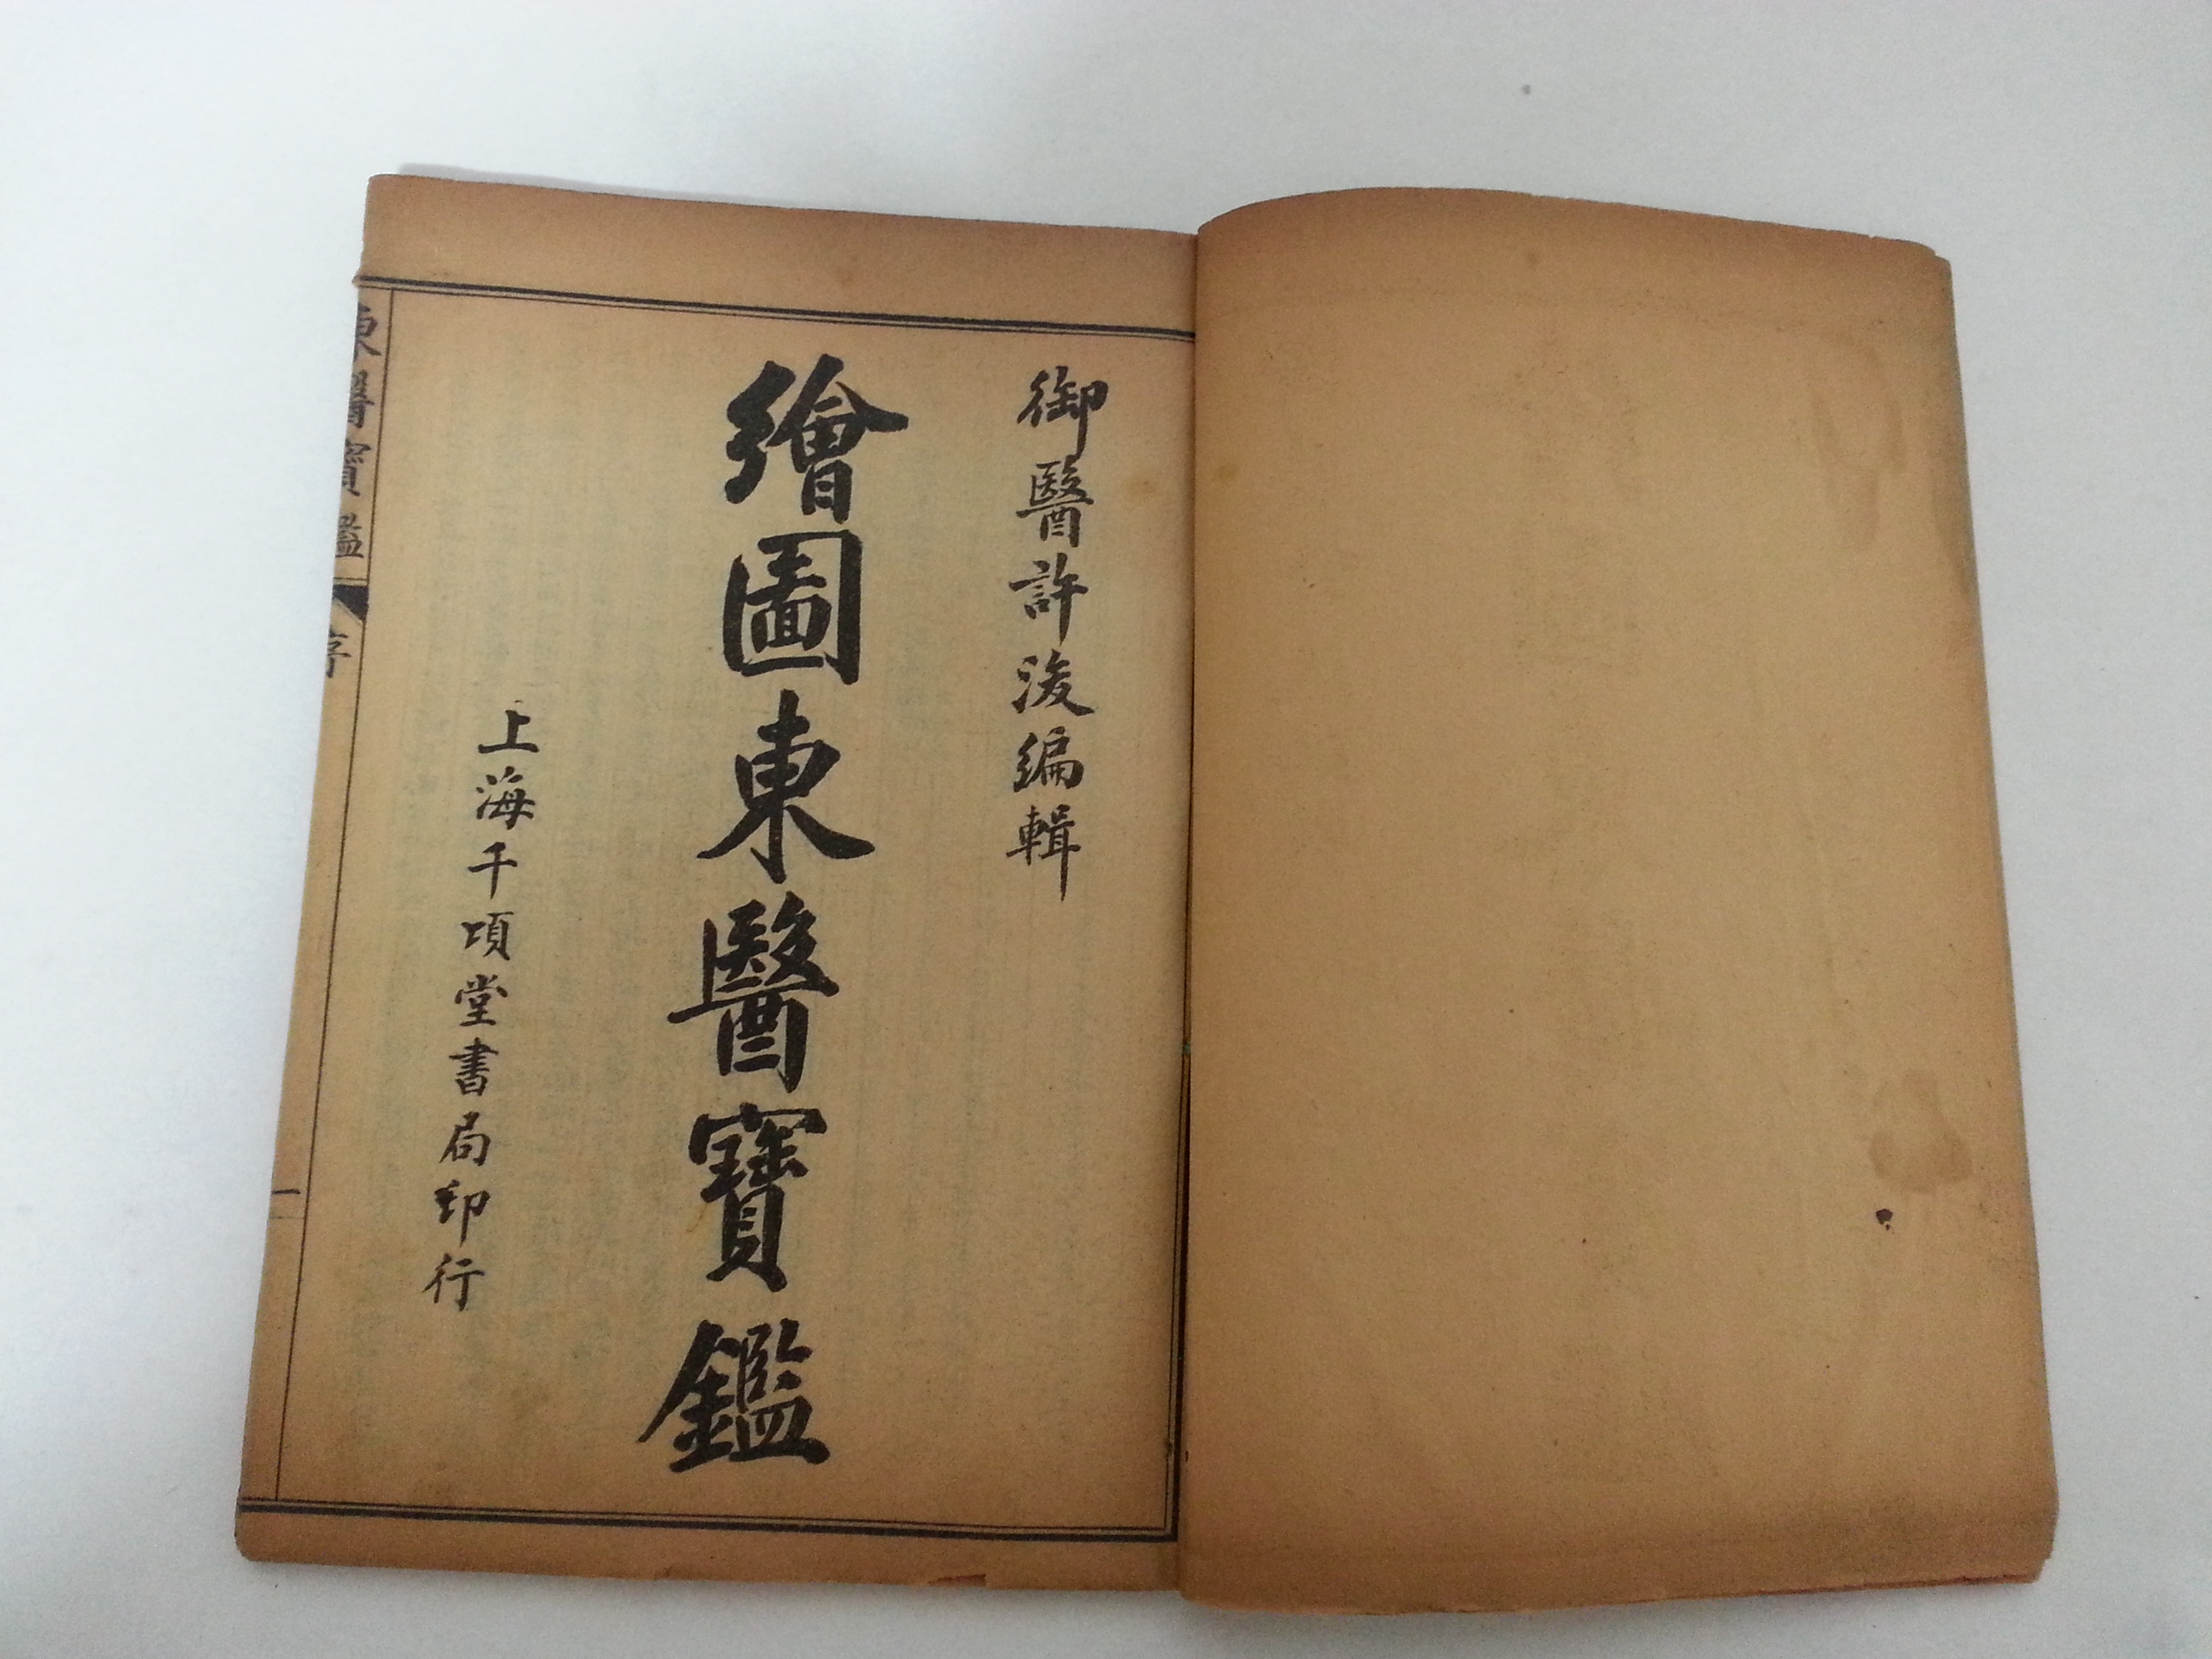 御醫許浚編輯
繪圖東醫寶鑑
上海千頃堂書局印行
東醫寶鑑
序
一